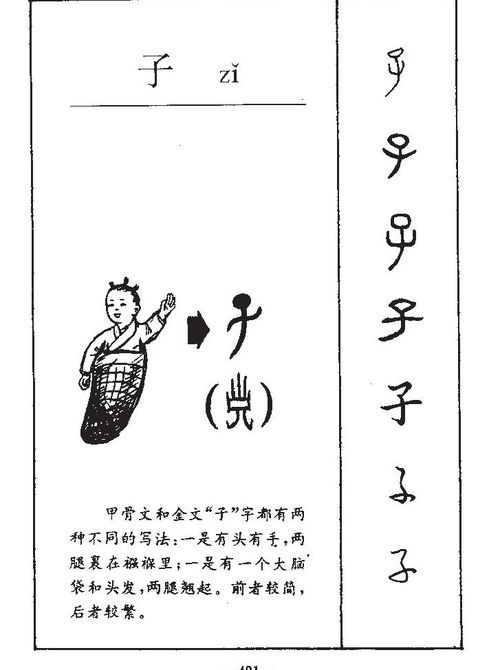 子 zǐ
甲骨文和金文“子”字都有两
种不同的写法:一是有头有手,两
腿裹在襁褓里;一是有一个大脑
袋和头发,两腿翘起。前者较简,
后者较繁。
子
子
子